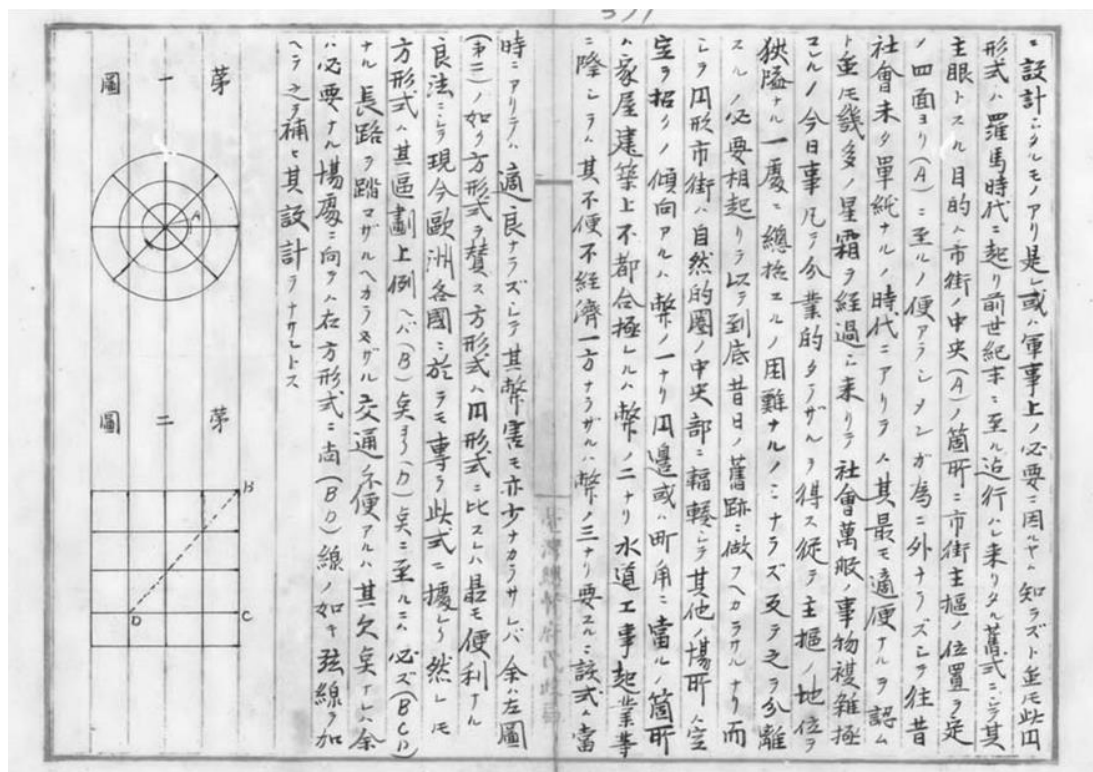 ニ設計シタルモノアリ是レ或ハ軍事上ノ必要ニ因ルヤヲ知ラズト並モ此円
形式ハ羅馬時代ニ起リ前世紀末ニ至ル迠行ハレ来リタル舊式ニシテ其
主眼トスル目的ハ市街ノ中央(A)ノ箇所ニ市街主樞ノ位置ヲ定
ノ四面ヨリ(A)ニ至ルノ便アラシメンガ為ニ外ナラズシテ往昔
社會未タ單純ナルノ時代ニアリテハ其最モ適便ナルヲ認ム
ト並モ幾多ノ星霜ヲ経過シ来リテ社會萬般ノ事物複雑極
マルノ今日事凡テ分業的タラザルヲ得ス従テ主樞ノ地位ヲ
狹隘ナル一處ニ總括スルノ困難ナルノミナラズ反テ之ヲ分離
スルノ必要相起リテ以テ到底昔日ノ舊跡ニ倣フヘカラサルナリ而
シテ円形市街ハ自然的圏ノ中央部ニ輻輳シテ其他ノ場所ハ空
空ヲ招クノ傾向アルハ幣ノ一ナリ円邊或ハ町角ニ當ルノ箇所
ハ家屋建築上不都合極レルハ幣ノ二ナリ水道工事起業等
ニ際シテハ其不便不経濟一方ナラザルハ幣ノ三ナリ要スルニ該式ハ當
時ニアリテハ適良ナラズシテ其幣害モ亦少ナカラサレバ余ハ左圖
(第二)ノ如ク方形式ヲ賛ス方形式ハ円形式ニ比スレハ最モ便利ナル
良法ニシテ現今歐洲各國ニ於テモ專ラ此式ニ據レリ然レモ
方形式ハ其區劃上例ヘバ(B)点ヨリ(D)点ニ至ルニハ必ズ(BCD)
ナル長路ヲ踏マザルヘカラザル交通不便アルハ其欠点ナレハ余
ハ必要ナル場處ニ向テハ右方形式ニ尚(BD)線ノ如キ弦線ヲ加
ヘテ之ヲ補ヒ其設計ヲナサントス
第一圖
A
第二圖
B
D
C